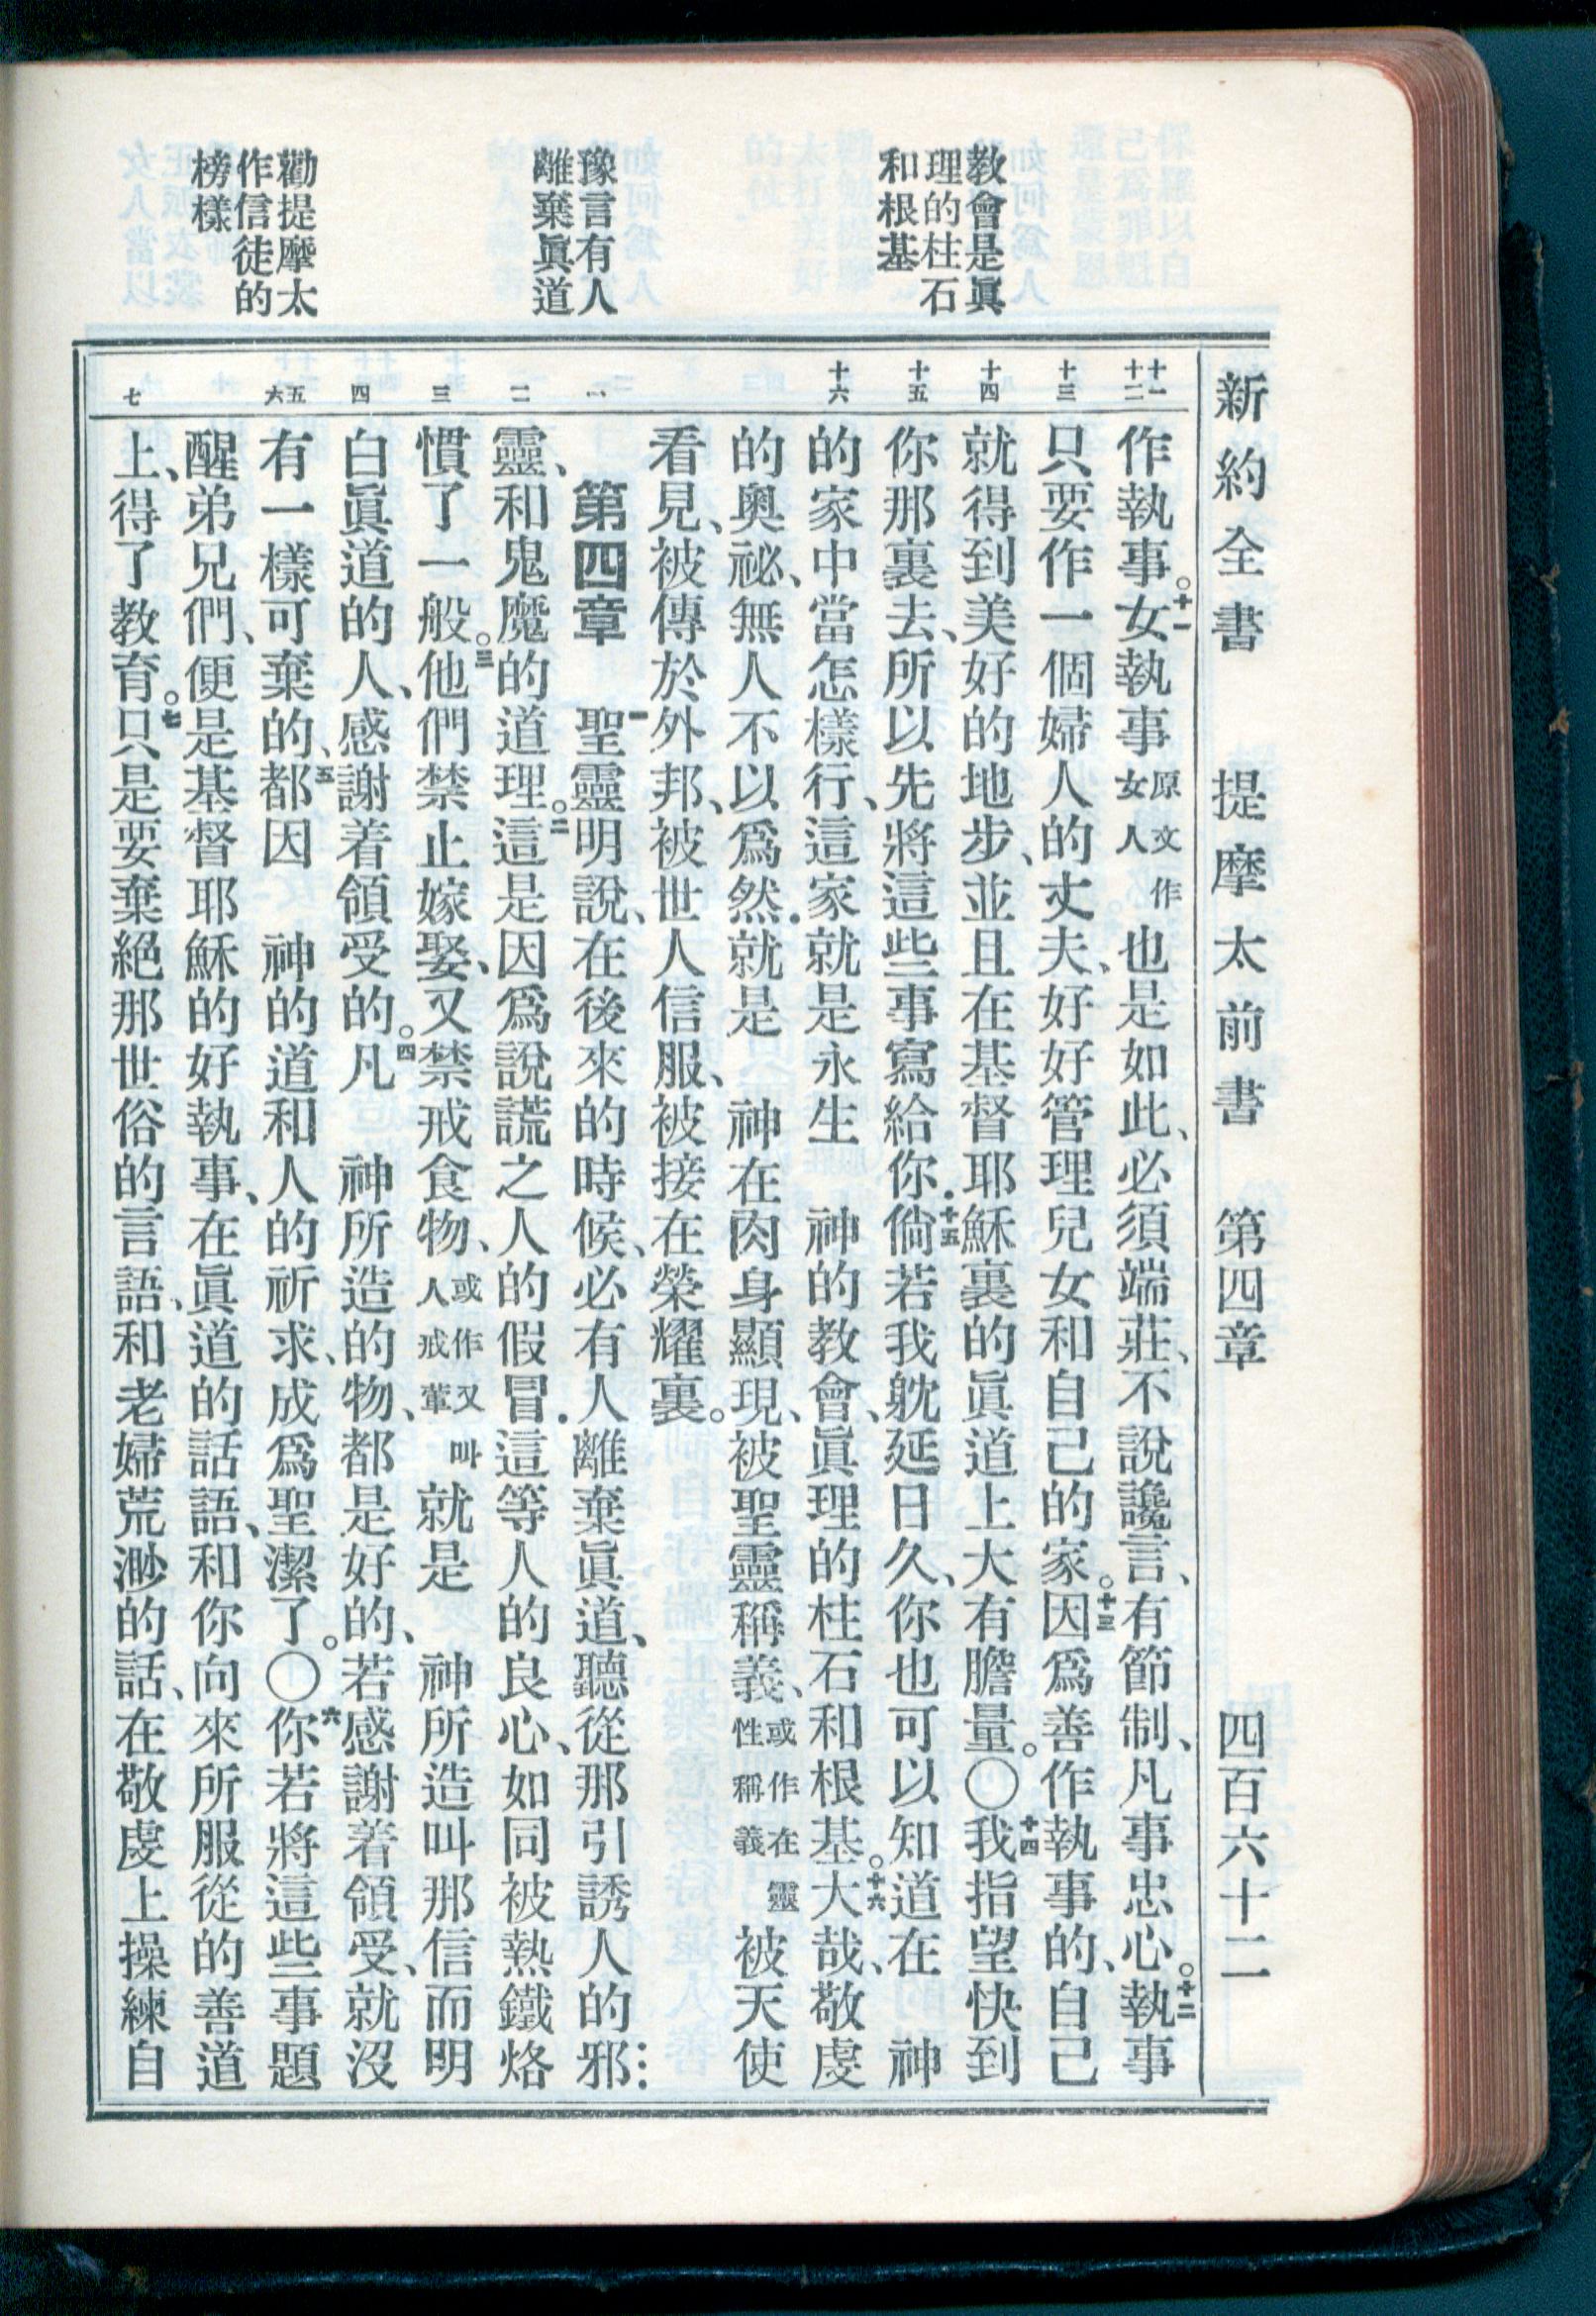 新約全書 提摩太前書 第四章 四百六十二
教會是眞
理的柱石
和根基
豫言有人
離棄眞道
勸提摩太
作信徒的
榜樣
十一
十二
十三
十四
十五
十六
一
二
三
四
五
六
七
作執事。十一女執事原文作女人也是如此、必須端莊、不說讒言、有節制、凡事忠心。十二執事
只要作一個婦人的丈夫、好好管理兒女和自己的家。十三因爲善作執事的、自己
就得到美好的地步、並且在基督耶穌裏的眞道上大有膽量。〇十四我指望快到
你那裏去、所以先將這些事寫給你．十五倘若我躭延日久、你也可以知道在 神
的家中當怎樣行、這家就是永生 神的教會、眞理的柱石和根基。十六大哉、敬虔
的奧祕、無人不以爲然．就是 神在肉身顯現、被聖靈稱義、或作在靈性稱義被天使
看見、被傳於外邦、被世人信服、被接在榮耀裏。
第四章 一聖靈明說、在後來的時候、必有人離棄眞道、聽從那引誘人的邪
靈、和鬼魔的道理。二這是因爲說謊之人的假冒．這等人的良心、如同被熱鐵烙
慣了一般。三他們禁止嫁娶、又禁戒食物、或作又叫人戒葷就是 神所造叫那信而明
白眞道的人、感謝着領受的。四凡 神所造的物、都是好的、若感謝着領受、就沒
有一樣可棄的、五都因 神的道和人的祈求、成爲聖潔了。〇六你若將這些事題
醒弟兄們、便是基督耶穌的好執事、在眞道的話語、和你向來所服從的善道
上、得了教育。七只是要棄絕那世俗的言語、和老婦荒渺的話、在敬虔上操練自